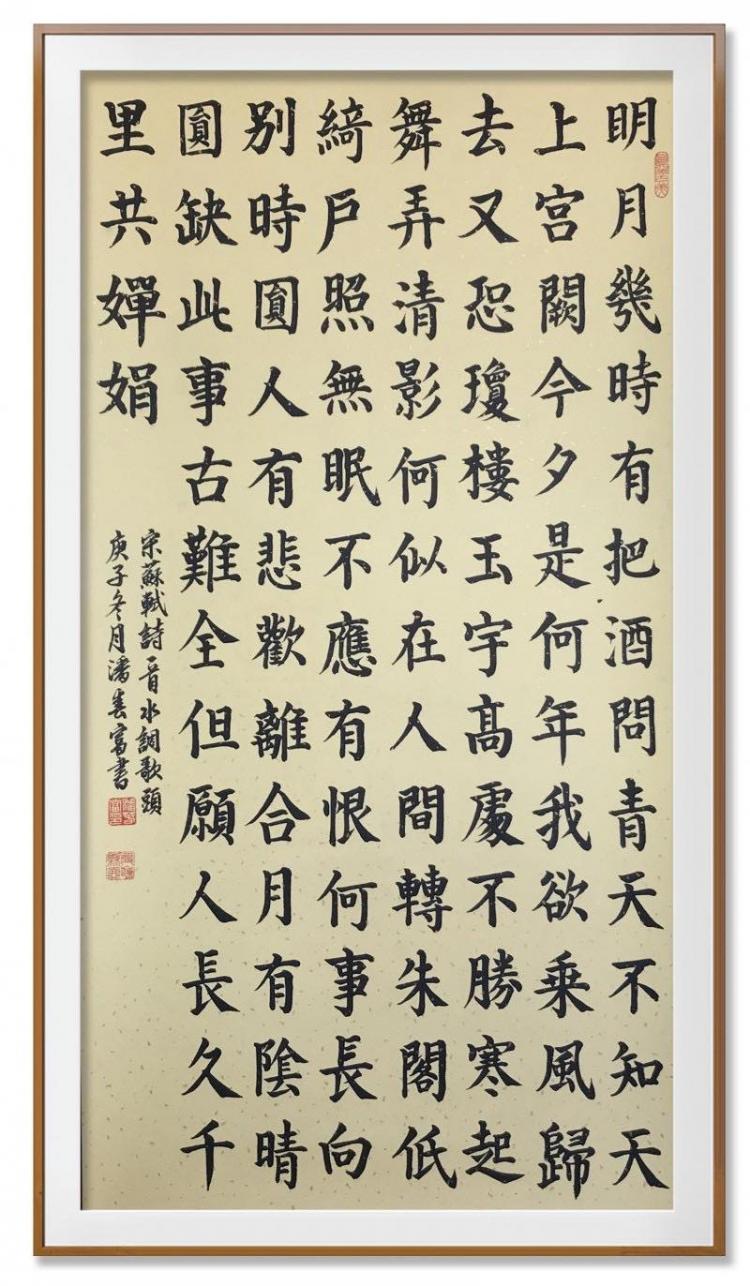 明月幾時有把酒問青天不知天
上宮闕今夕是何年我欲乘風歸
去又恐瓊樓玉宇高處不勝寒起
舞弄清影何似在人間轉朱閣低
綺戶照無眠不應有恨何事長向
別時圓人有悲歡離合月有陰晴
圓缺此事古難全但願人長久千
里共嬋娟
宋蘇軾詩一首水調歌頭
庚子冬月潘春富書